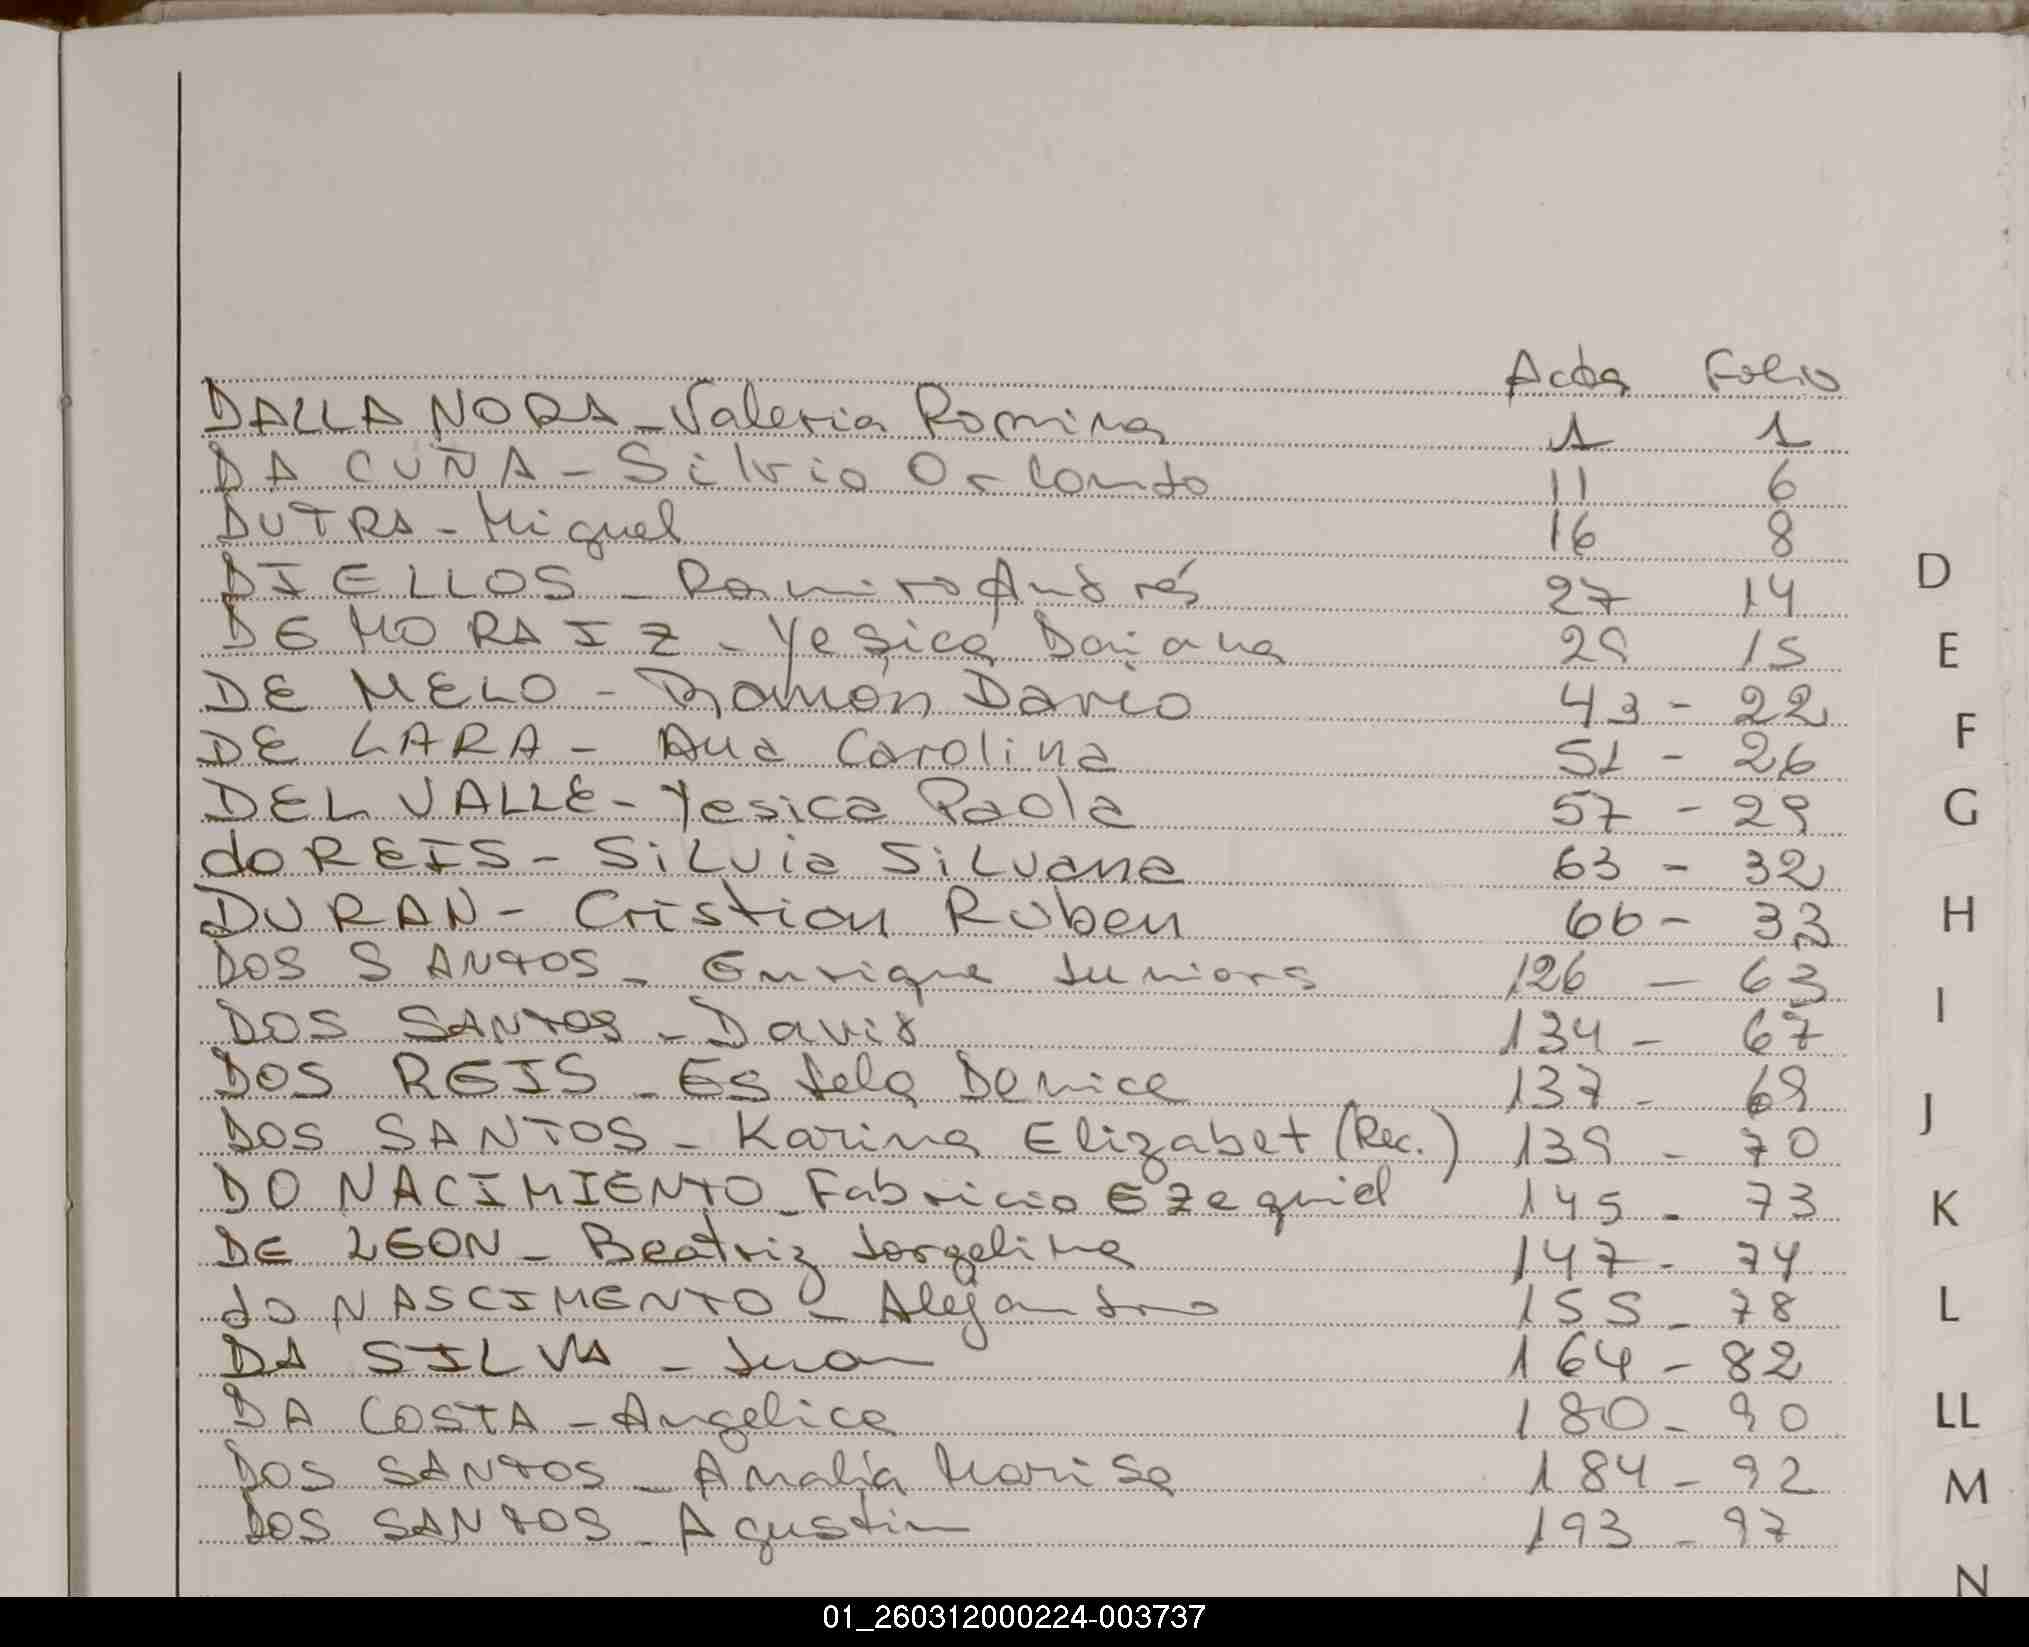 Acta Folio
DALLA NORA - Valeria Romina 1 1
DA CUÑA - Silvio Orlando 11 6
DUTRA - Miguel 16 8
DIELLOS - Ramiro Andrés 27 14
DE MORAIZ - Yesica Daiana 29 15
DE MELO - Ramón Dario 43 - 22
DE LARA - Ana Carolina 51 - 26
DEL VALLE - Yesica Paola 57 - 29
do REIS - SiLvia SiLvana 63 - 32
DURAN - Cristian Ruben 66 - 33
DOS SANTOS - Enrique Juniors 126 - 63
DOS SANTOS - David 134 - 67
DOS REIS - Estela Denice 137 - 69
DOS SANTOS - Karina Elizabet (Rec.) 139 - 70
DO NACIMIENTO - Fabricio Ezequiel 145 - 73
DE LEON - Beatriz Jorgelina 147 - 74
do NASCIMENTO - Alejandro 155 - 78
DA SILVA - Juan 164 - 82
DA COSTA - Angelica 180 - 90
DOS SANTOS - Analia Marisa 184 - 92
DOS SANTOS - Agustin 193 - 97
D
E
F
G
H
I
J
K
L
LL
M
N
01_260312000224-003737